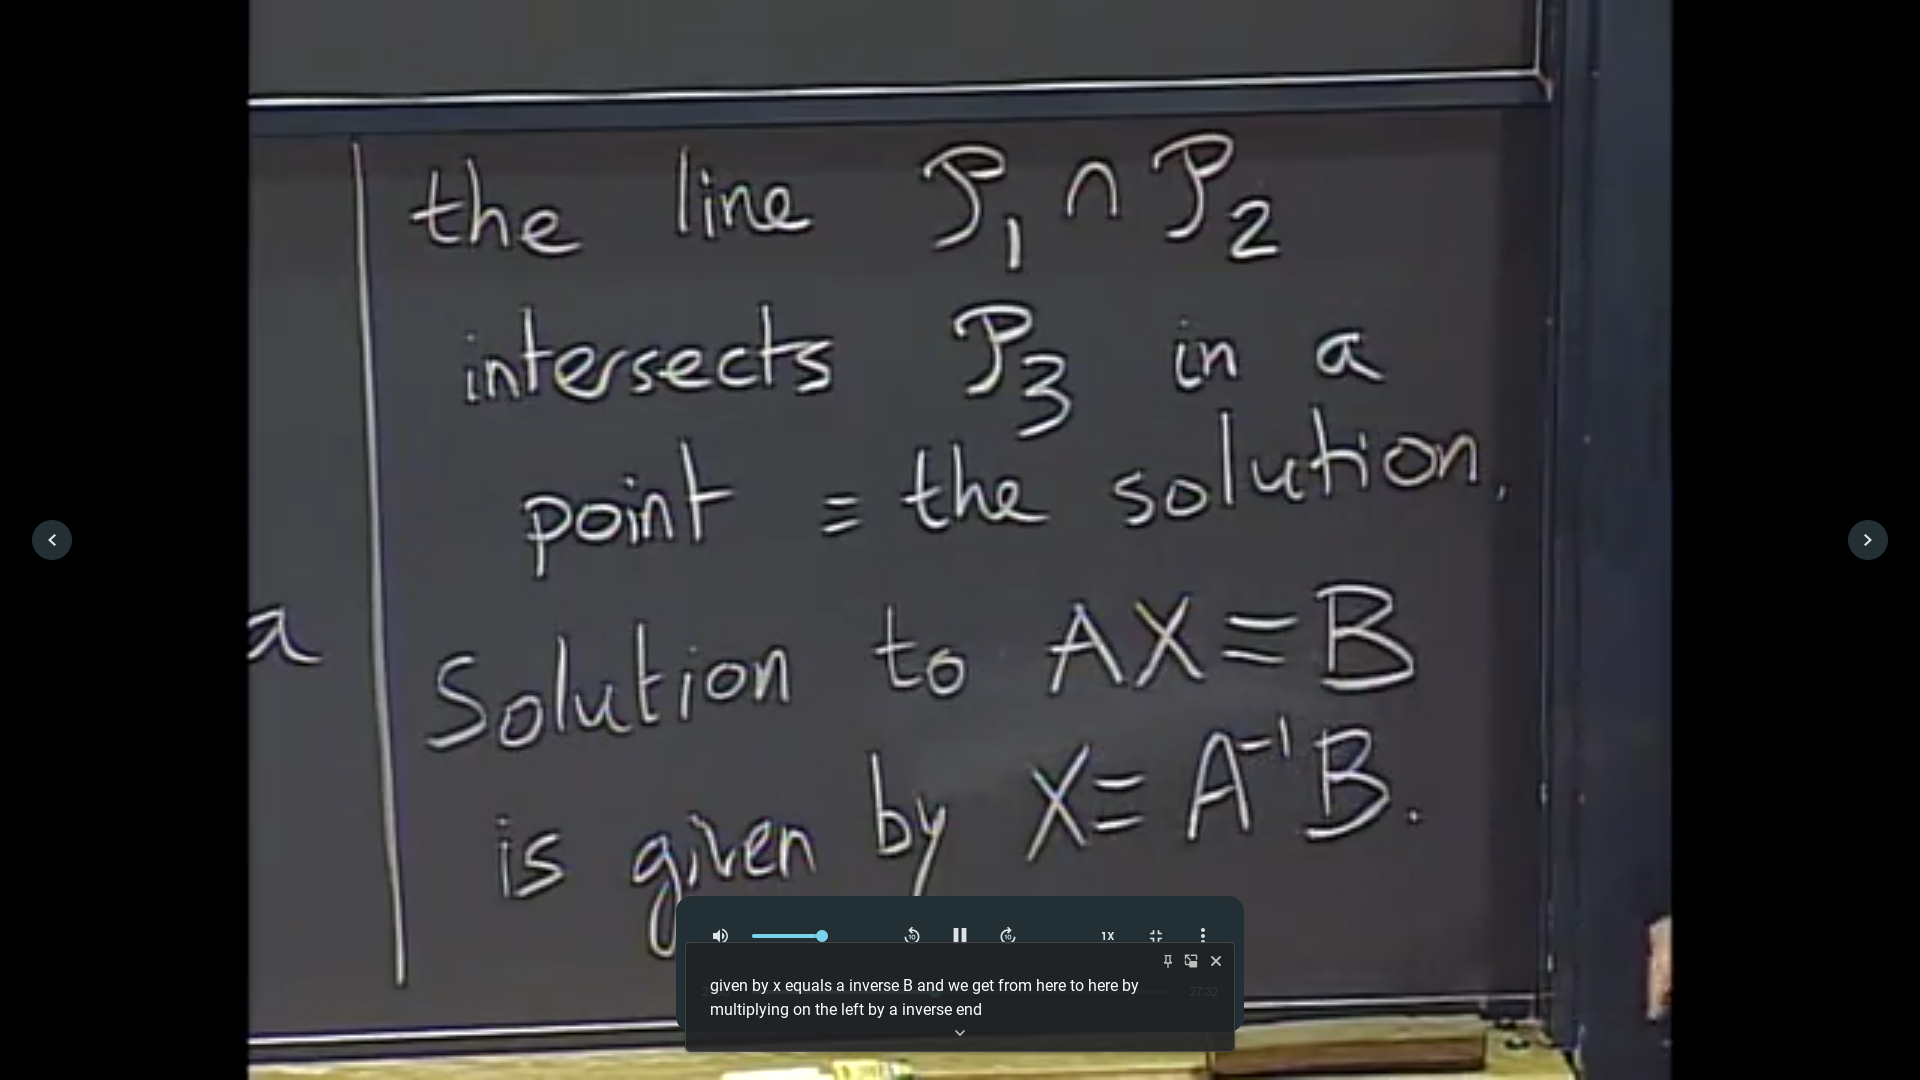 the line P₁ ∩ P₂
intersects P₃ in a
point = the solution.
a
Solution to AX = B
is given by X = A⁻¹B.
10
10
1X
given by x equals a inverse B and we get from here to here by
27:32
multiplying on the left by a inverse end